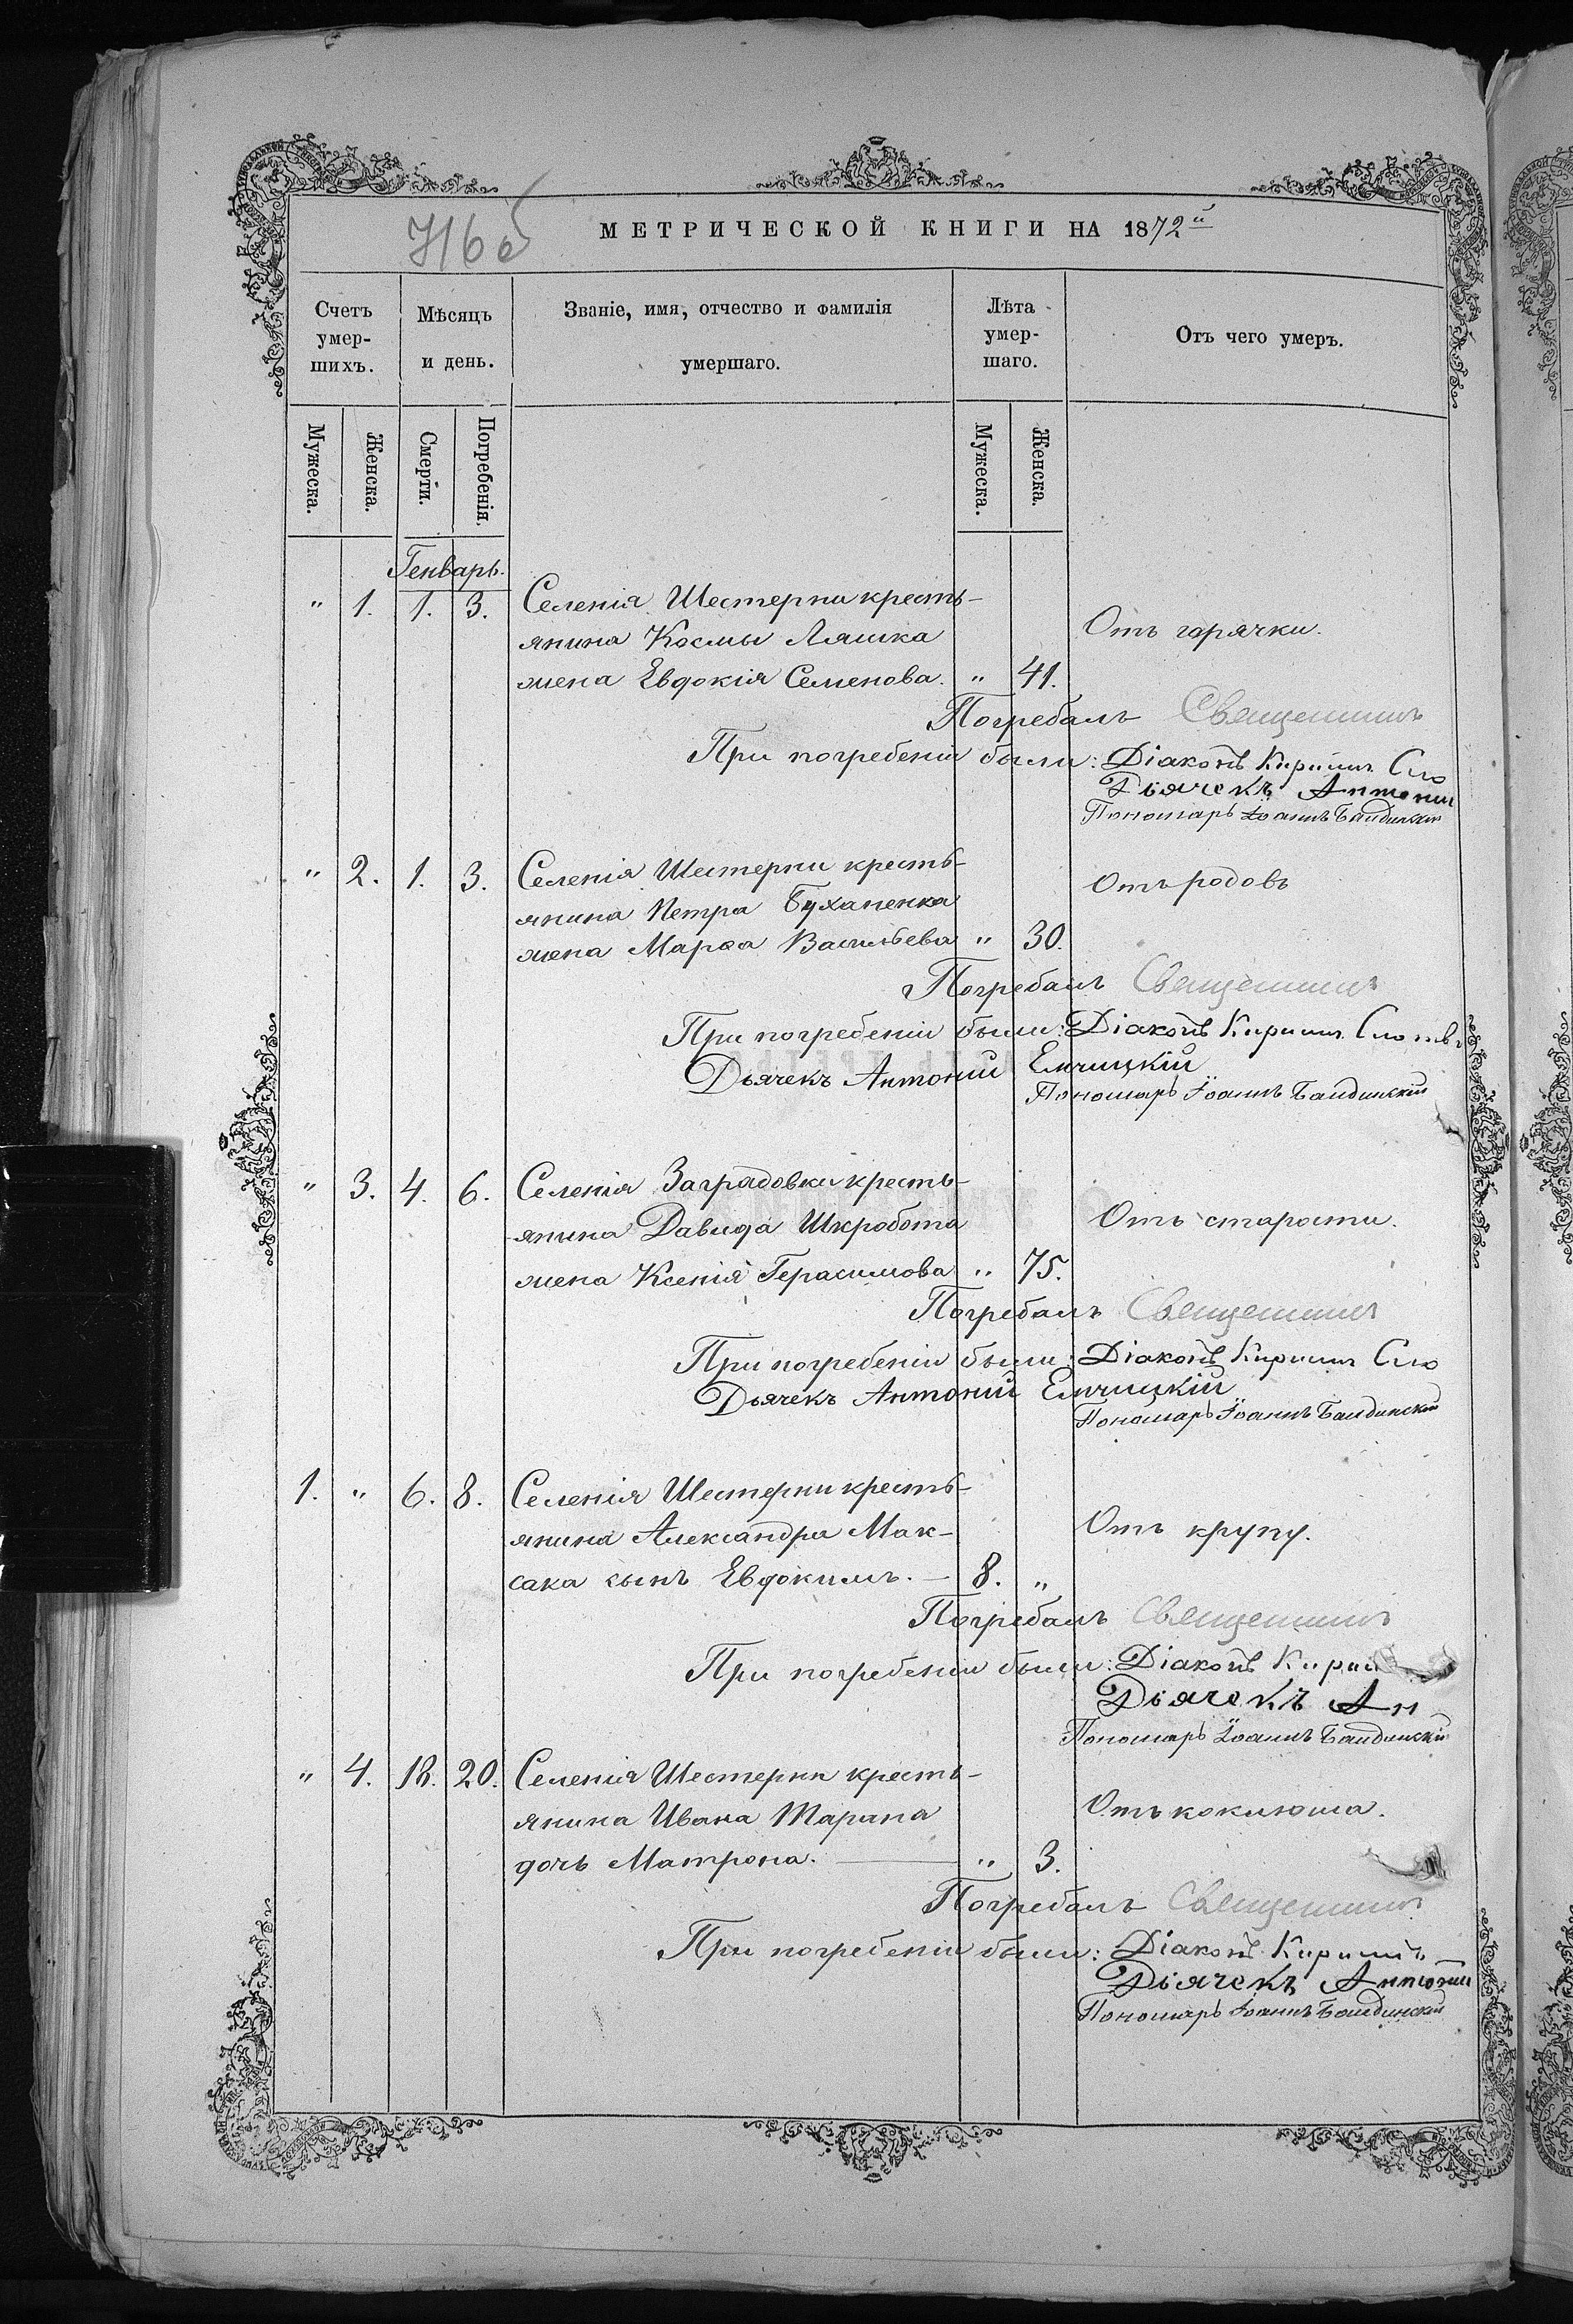 716 об
МЕТРИЧЕСКОЙ КНИГИ НА 1872й
Счетъ умер-шихъ.
Мѣсяцъ и день.
Званіе, имя, отчество и фамилія умершаго.
Лѣта умер-шаго.
Отъ чего умеръ.
Мужеска.
Женска.
Смерти.
Погребенія.
Мужеска.
Женска.
Генварь.
" 1. 1. 3. Селенія Шестерни кресть-
янина Космы Ляшка Отъ горячки.
жена Евдокія Семенова. " 41.
Погребалъ Священникъ
При погребеніи были: Діаконъ Кириллъ
Діячекъ Антоній
Пономарь Іоаннъ Балдинскій
" 2. 1. 3. Селенія Шестерни кресть- Отъ родовъ
янина Петра Буханенка
жена Марѳа Васильева " 30.
Погребалъ Священникъ
При погребеніи были: Діаконъ Кириллъ
Дьячекъ Антоній Ельчицкій
Пономарь Іоаннъ Балдинскій
" 3. 4. 6. Селенія Заградовки кресть-
янина Давида Шкробота Отъ старости.
жена Ксенія Герасимова " 75.
Погребалъ Священникъ
При погребеніи были: Діаконъ Кириллъ
Дьячекъ Антоній Ельчицкій
Пономарь Іоаннъ Балдинскій
1. " 6. 8. Селенія Шестерни кресть-
янина Александра Мак- Отъ крупу.
сака сынъ Евдокимъ. — 8. "
Погребалъ Священникъ
При погребеніи были: Діаконъ Кирил
Діячекъ Ан
Пономарь Іоаннъ Балдинскій
" 4. 18. 20. Селенія Шестерни кресть-
янина Ивана Тарана Отъ коклюша.
дочь Матрона. — " 3.
Погребалъ Священникъ
При погребеніи были: Діаконъ Кириллъ
Діячекъ Антоній
Пономарь Іоаннъ Балдинскій